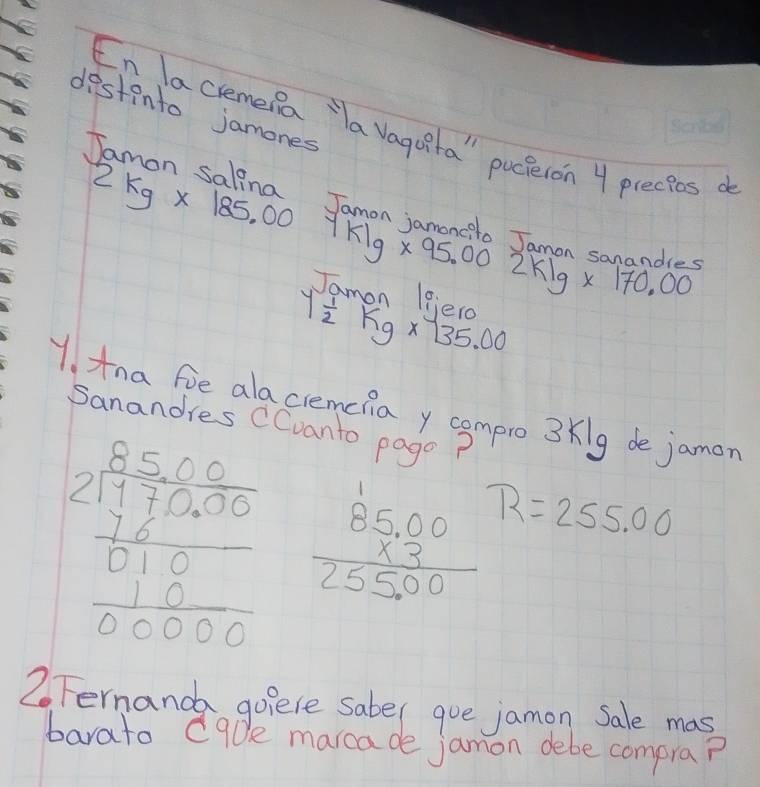 En la cremeria "la vaquita" pucierón 4 precios de
distinto jamones
Jamon salina
2 Kg x 185.00
Jamon jamoncito
1 Klg x 95.00
Jamon sanandres
2 Klg x 170.00
Jamon lijero
1 1/2 Kg x 135.00
1. Ana fue ala cremeria y compro 3 Klg de jamon
Sanandres ¿Cuanto pago?
85.00
2 170.00
16
010
10
00000
1
85.00
x 3
255.00
R=255.00
2. Fernanda quiere saber que jamon sale mas
barato ¿que marca de jamon debe compra?
Scribe